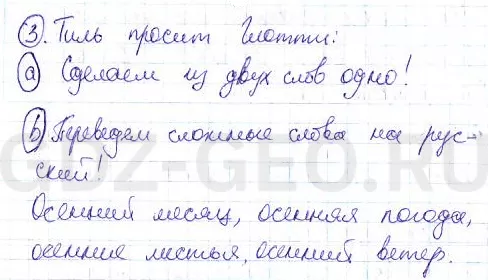 3. Тиль просит Глотти:
a) Сделаем из двух слов одно!
b) Переведем сложные слова на рус-
ский!
Осенний месяц, осенняя погода,
осенние листья, осенний ветер.
GDZ-GEO.RU